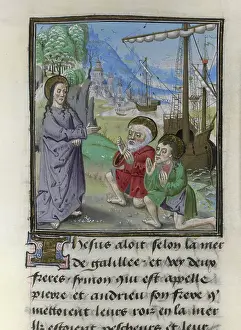 Ihesus aloit selon la mer
de galilee et vit deux
freres symon qui est appelle
pierre et andrieu son frere q̄
mettoient leurs roiz en la mer
Ilz estoient pescheurs et leur